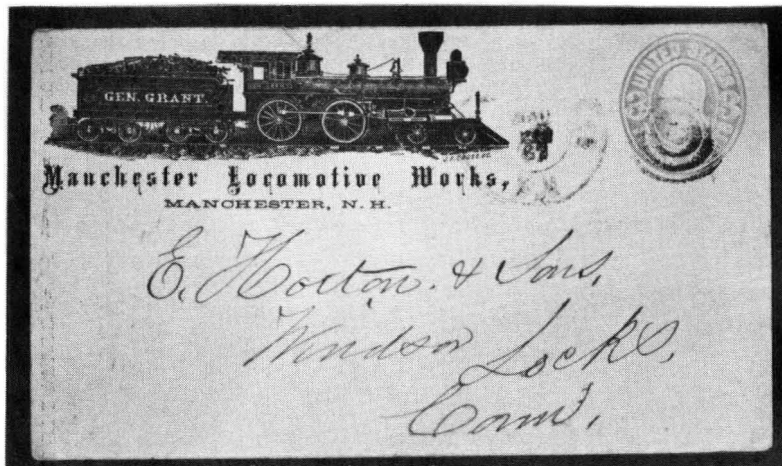 GEN. GRANT.
UNITED STATES
Manchester Locomotive Works,
MANCHESTER, N. H.
E. Horton & Sons,
Windsor Locks,
Conn.